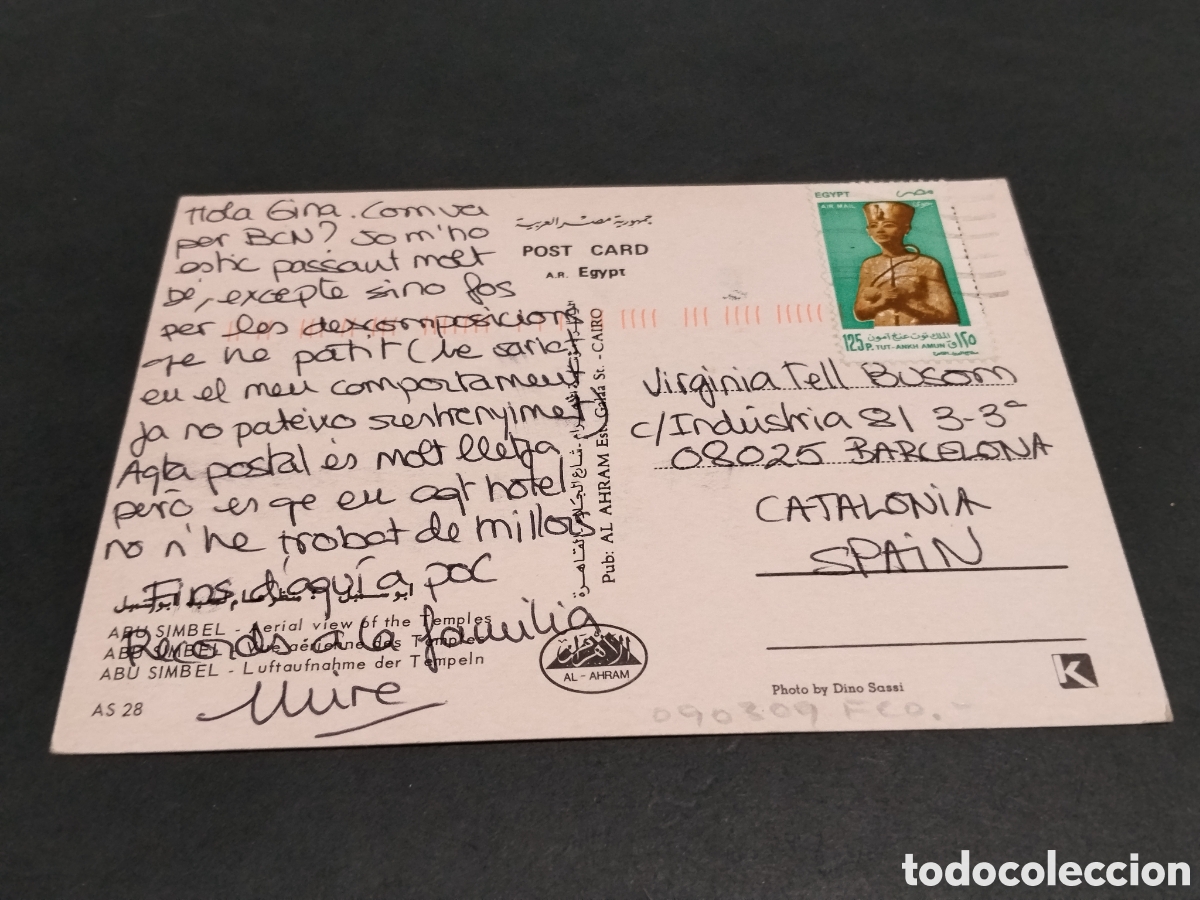 Hola Gina. Com va
per BCN? Jo m'ho
estic passant molt
bé, excepte sino fos
per les descomposicions
qe he patit (he variat
en el meu comportament
ja no pateixo
Aqta postal és molt lletja
però es qe en aqt hotel
no n'he trobat de millors
Fins d'aquí a poc
Records a la família
Mire
ABU SIMBEL - Aerial view of the Temples
ABU SIMBEL - Vue aérienne des Temples
ABU SIMBEL - Luftaufnahme der Tempeln
AS 28
جمهورية مصر العربية
POST CARD
A.R. Egypt
Pub: AL AHRAM Est. Galaa St. - CAIRO
الأهرام
AL - AHRAM
EGYPT مصر
AIR MAIL
الملك توت عنخ آمون
125 P. TUT-ANKH AMUN ١٢٥
Virginia Tell Busom
c/Indústria 81 3-3ª
08025 BARCELONA
CATALONIA
SPAIN
Photo by Dino Sassi
K
090809 FCO.-
todocoleccion